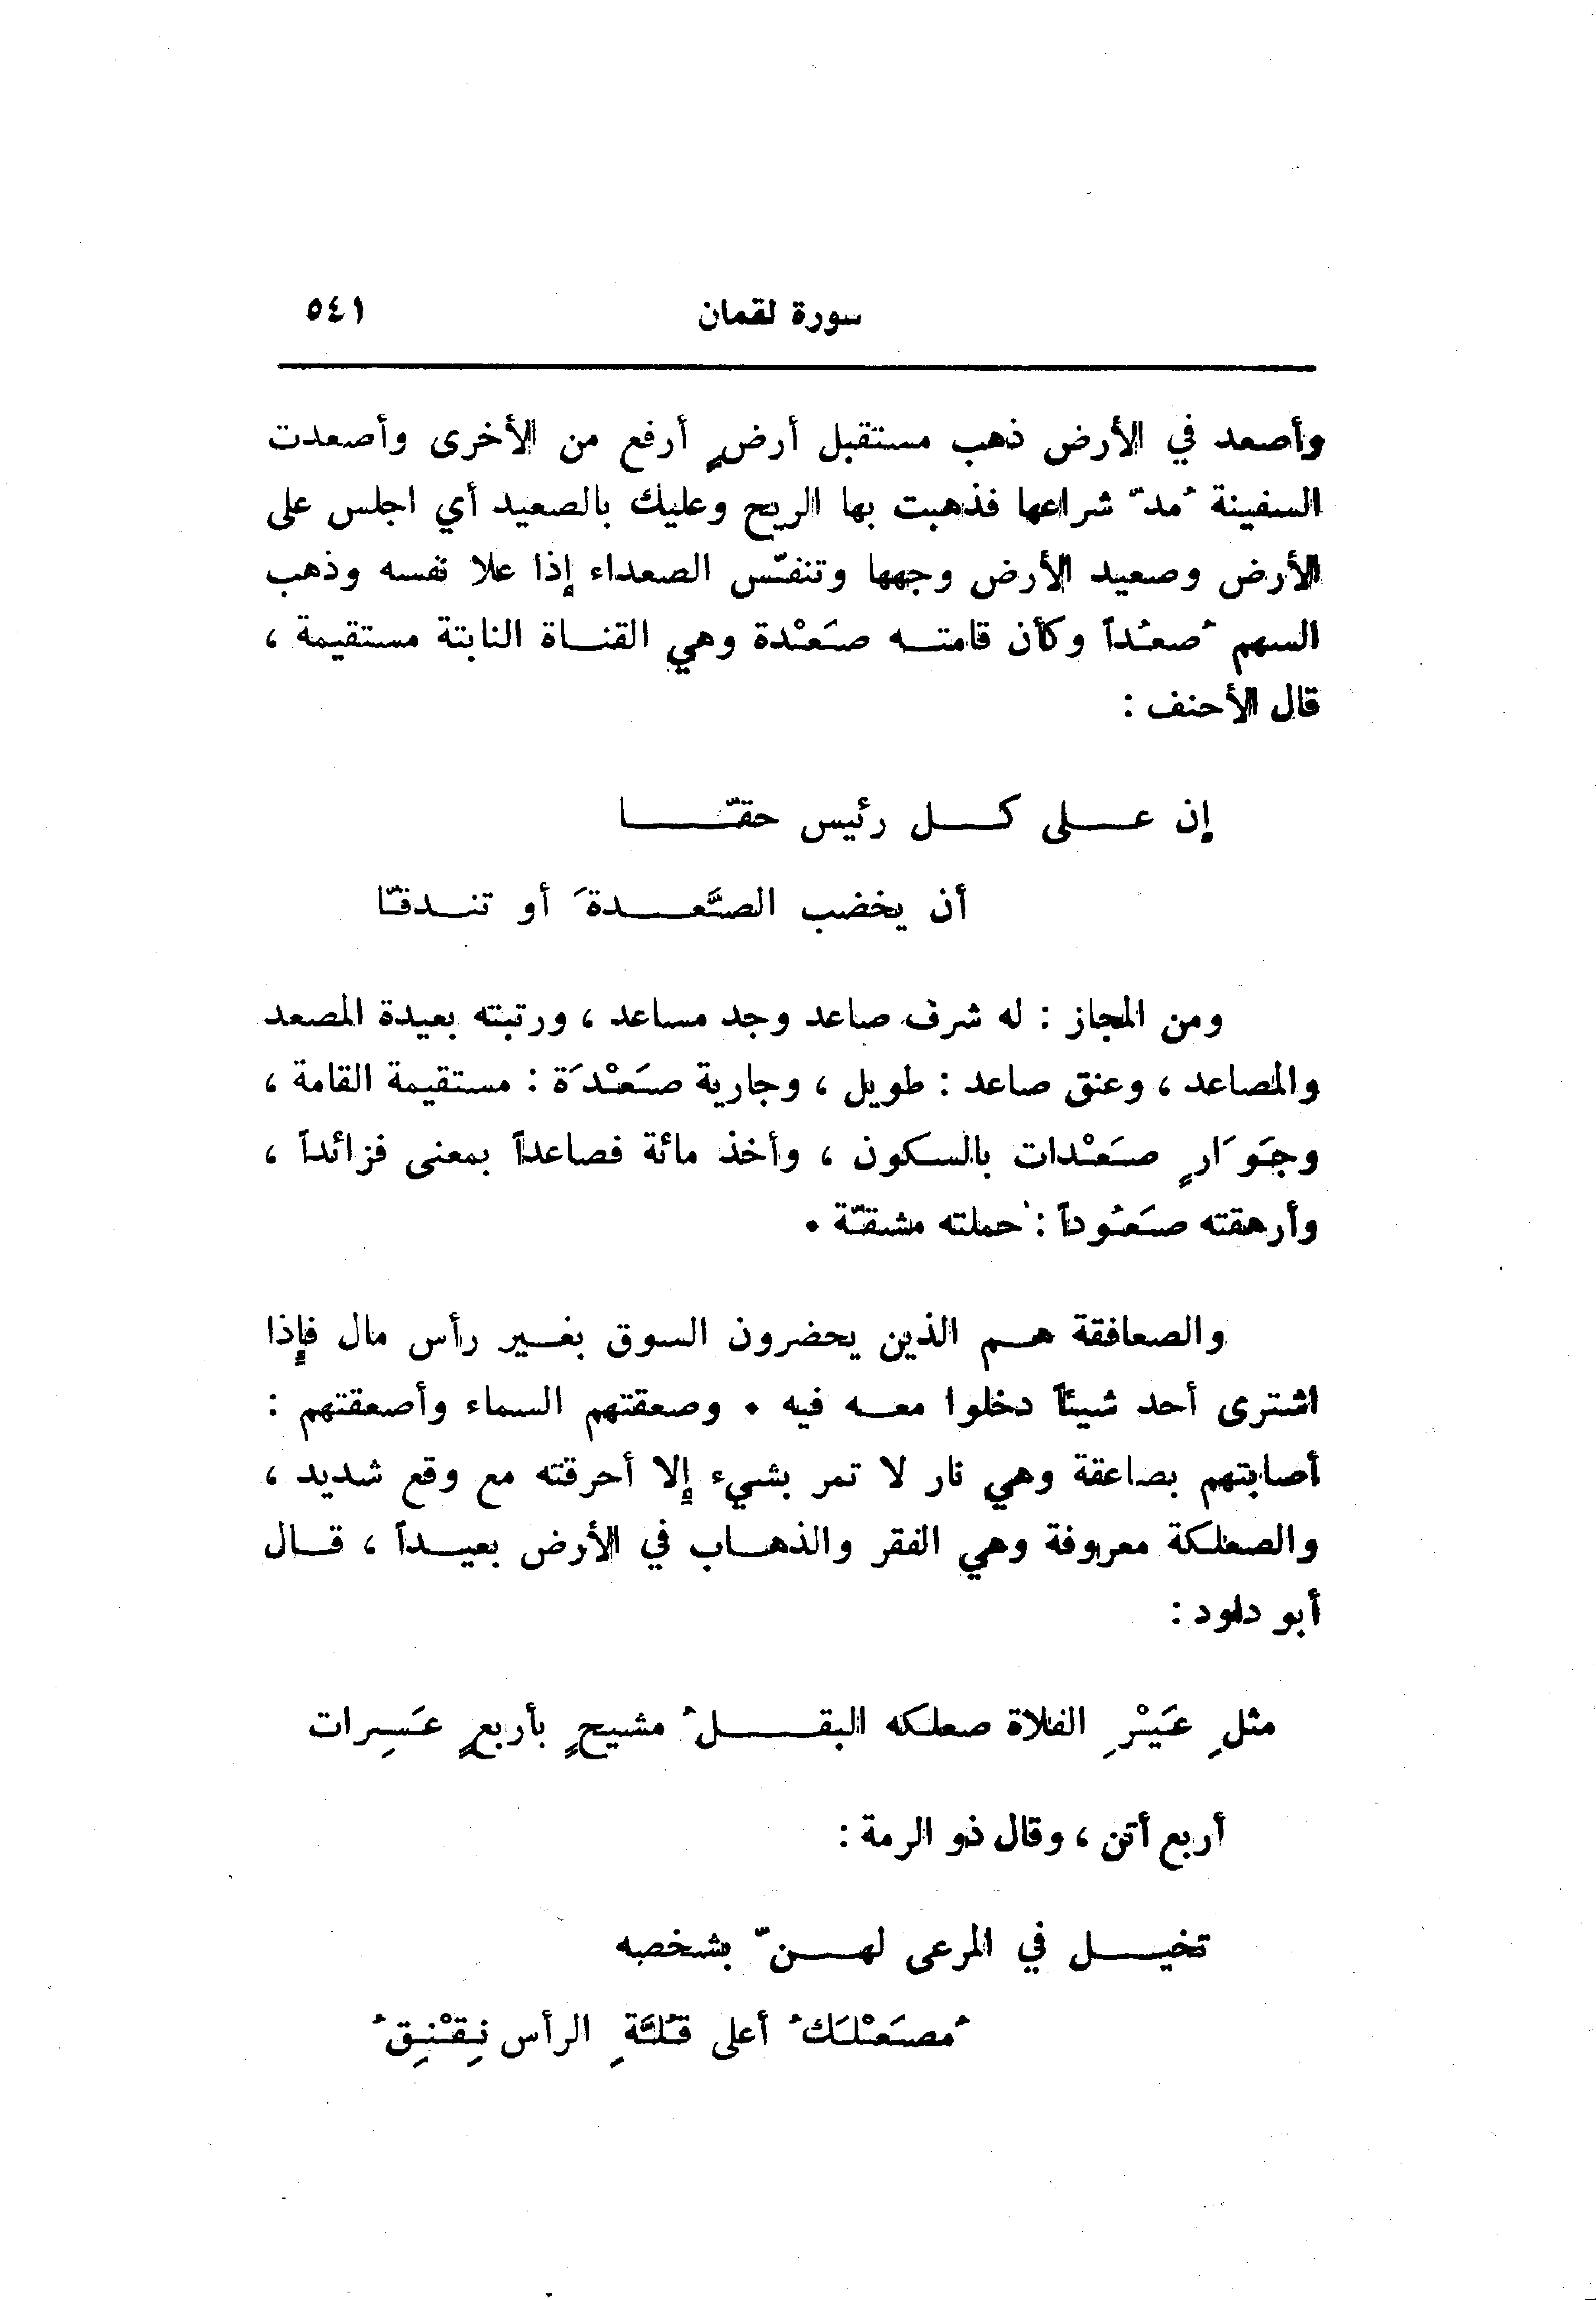 سورة لقمان ٥٤١
وأصعد في الأرض ذهب مستقبل أرضٍ أرفع من الأخرى وأصعدت
السفينة مُدّ شراعها فذهبت بها الريح وعليك بالصعيد أي اجلس على
الأرض وصعيد الأرض وجهها وتنفّس الصعداء إذا علا نفسه وذهب
السهم صُعُداً وكأن قامته صَعْدة وهي القناة النابتة مستقيمة ،
قال الأحنف :
إن على كل رئيس حقّا
أن يخضب الصَّعدةَ أو تندقّا
ومن المجاز : له شرف صاعد وجد مساعد ، ورتبته بعيدة المصعد
والمصاعد ، وعنق صاعد : طويل ، وجارية صَعْدَة : مستقيمة القامة ،
وجَوَارٍ صَعْدات بالسكون ، وأخذ مائة فصاعداً بمعنى فزائداً ،
وأرهقته صَعُوداً : حملته مشقّة .
والصعافقة هم الذين يحضرون السوق بغير رأس مال فإذا
اشترى أحد شيئاً دخلوا معه فيه . وصعقتهم السماء وأصعقتهم :
أصابتهم بصاعقة وهي نار لا تمر بشيء إلا أحرقته مع وقع شديد ،
والصعلكة معروفة وهي الفقر والذهاب في الأرض بعيداً ، قال
أبو داود :
مثلِ عَيْرِ الفلاة صعلكه البقلُ مشيحٍ بأربعٍ عَسِرات
أربع أتن ، وقال ذو الرمة :
تخيل في المرعى لهنّ بشخصه
مُصَعْلَكُ أعلى قُلَّةِ الرأس نِقْنِقُ